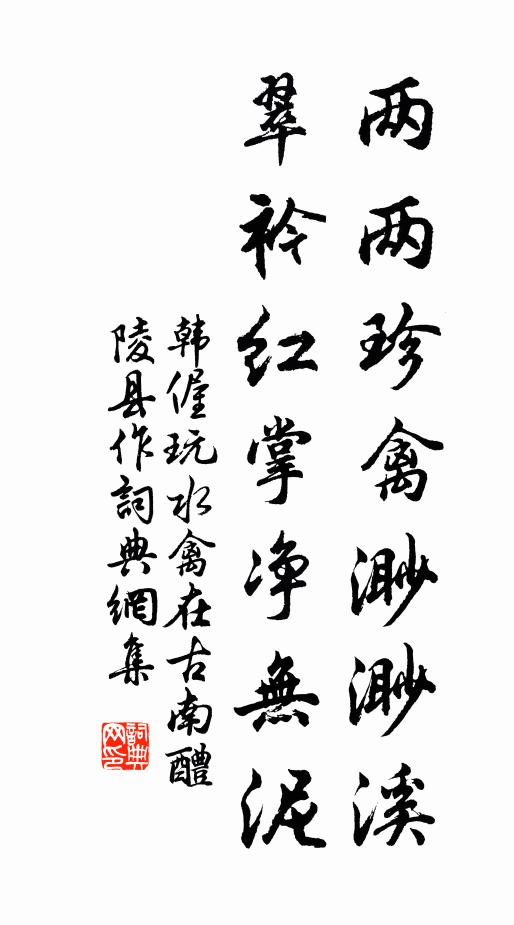 两两珍禽渺渺溪
翠衿红掌净無泥
韩偓玩水禽在古南醴
陵县作詞典網集
詞典
网印